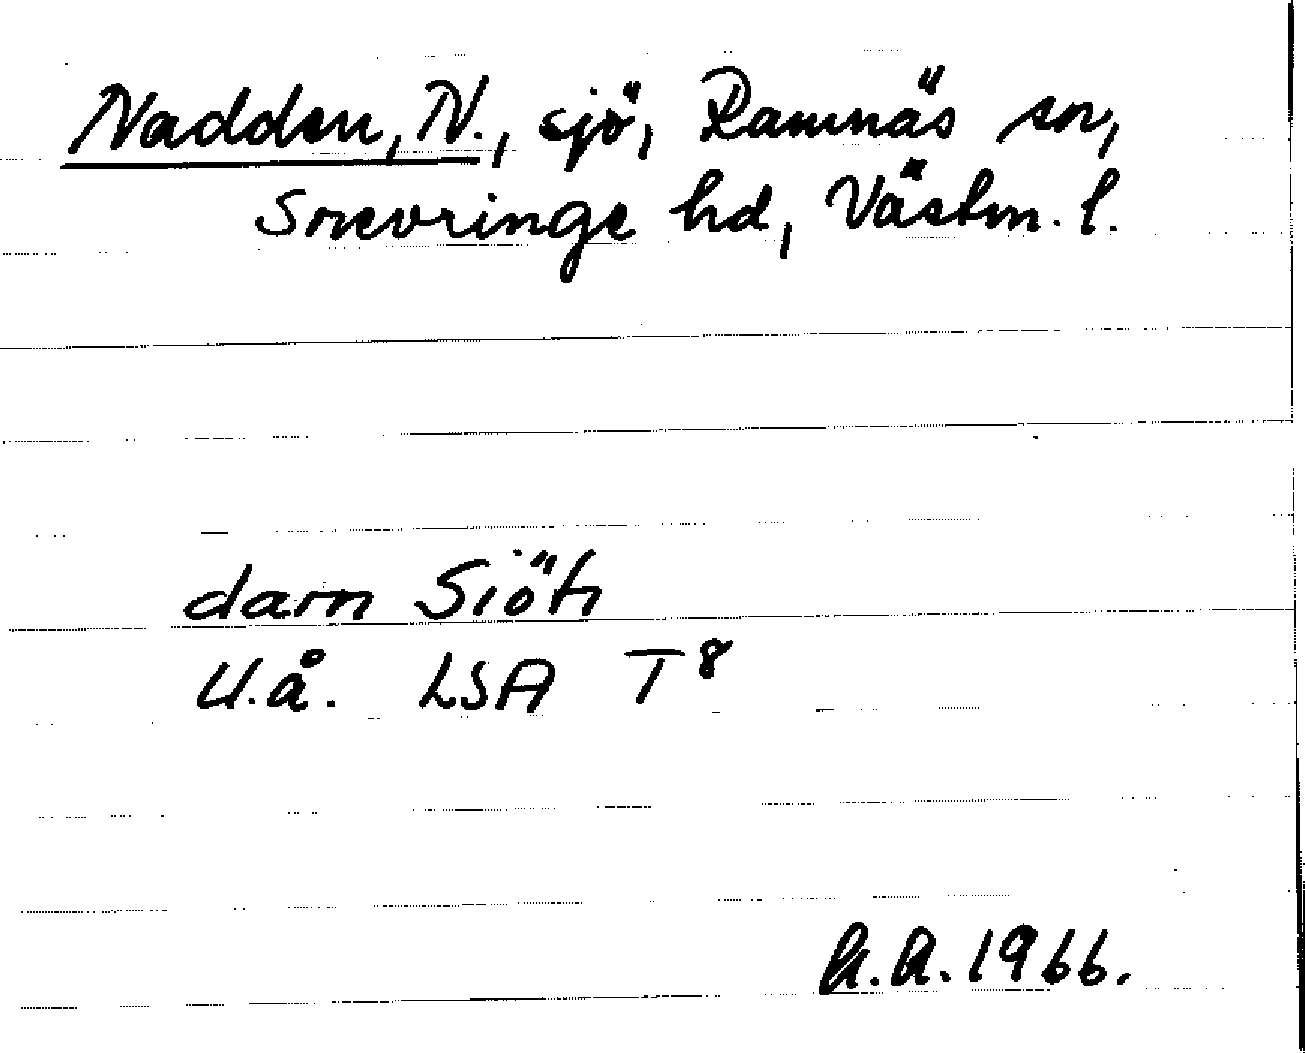 Nadden, N., sjö, Ramnäs sn,
Snevringe hd, Västm. l.
darn Siöh
U.å. LSA T 8
K.A. 1966.